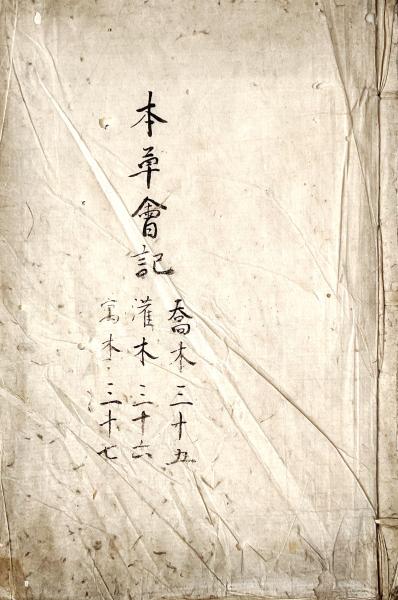 本草會記
喬木 三十五
灌木 三十六
寓木 三十七